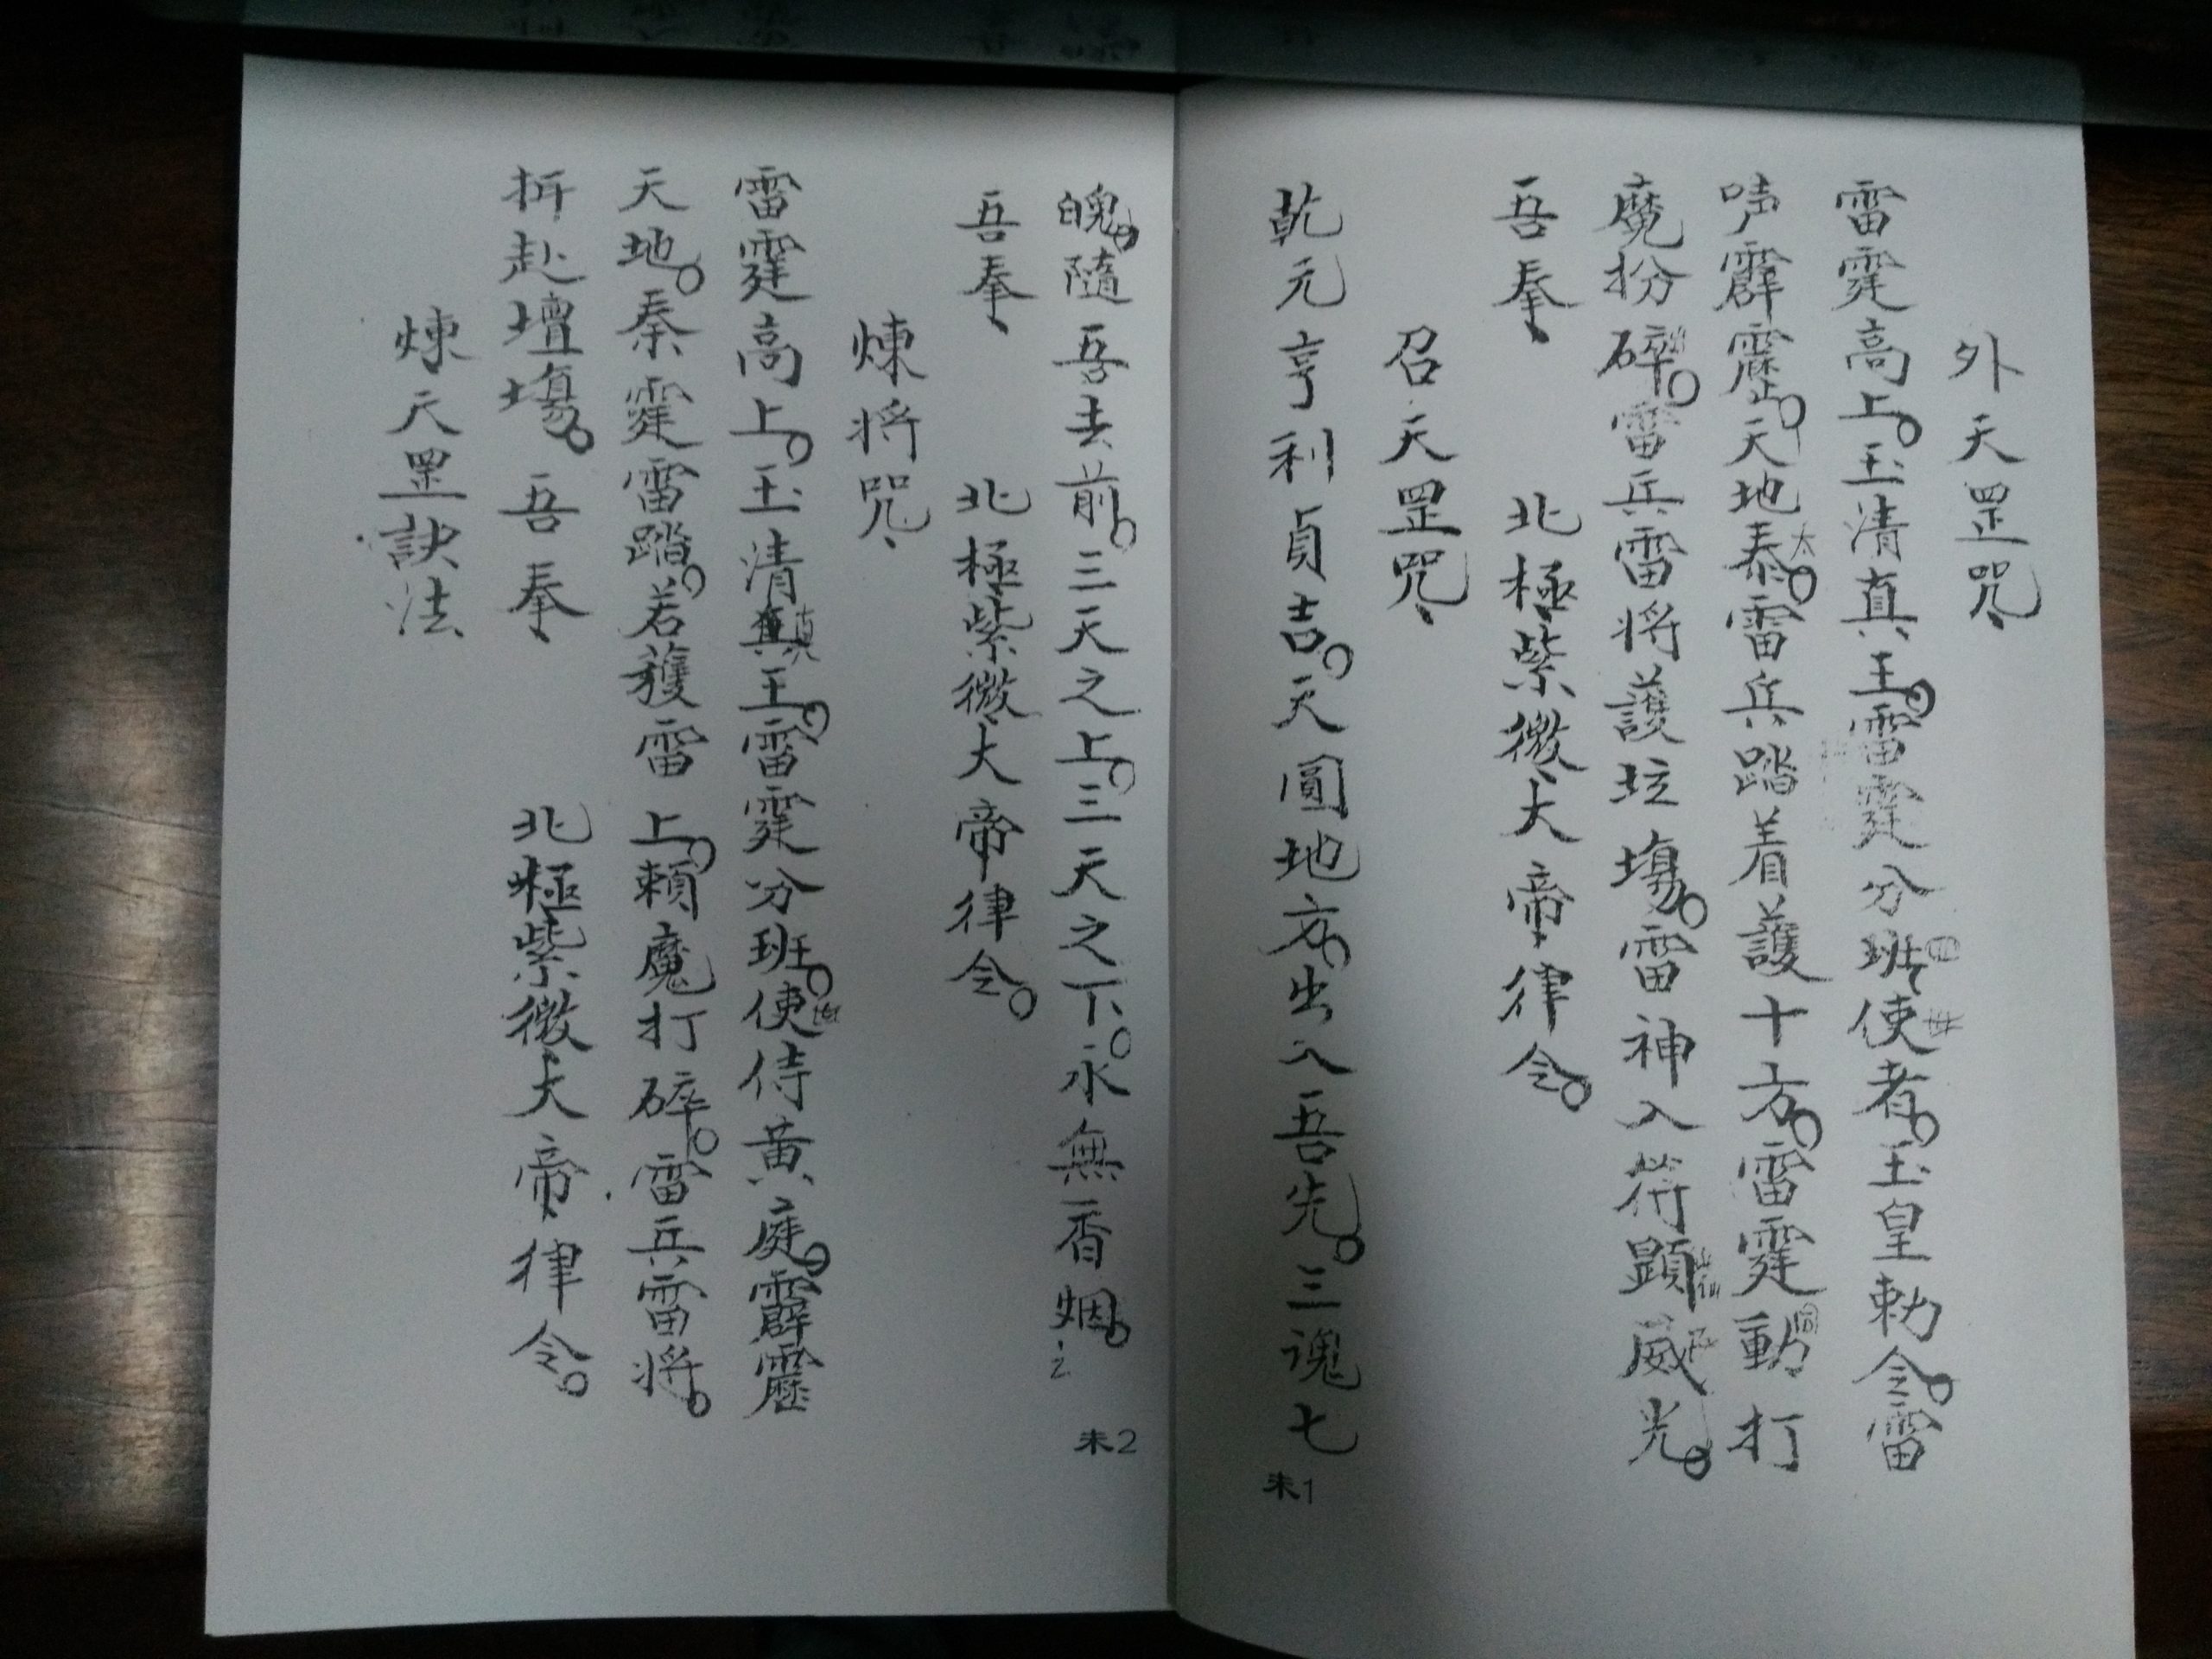 外天罡咒、
雷霆高上。玉清真王。雷霆分班使者。玉皇勅令。雷
声霹靂。天地泰。雷兵踏着護十方。雷霆動打
魔扮碎。雷兵雷将護坛塲。雷神入符顕威光。
吾奉、 北極紫微大帝律令。
召天罡咒、
乾元亨利貞吉。天圓地方。出入吾先。三魂七
朱1
魄。隨吾去前。三天之上。三天之下。永無香烟。
吾奉、 北極紫微大帝律令。
煉将咒、
雷霆高上。玉清真王。雷霆分班。使侍黃庭。霹靂
天地。秦霆雷踏。若獲雷上。賴魔打碎。雷兵雷将。
拆赴壇塲。吾奉、 北極紫微大帝律令。
煉天罡訣法
朱2